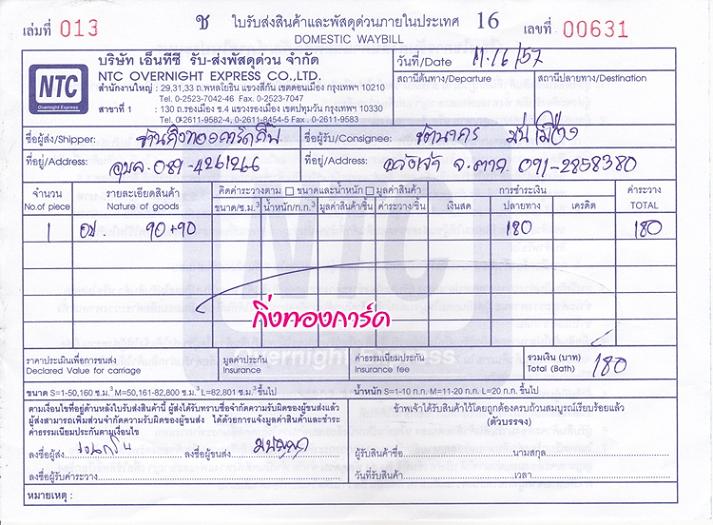 เล่มที่ 013 ช ใบรับส่งสินค้าและพัสดุด่วนภายในประเทศ 16 เลขที่ 00631
DOMESTIC WAYBILL
NTC
Overnight Express
บริษัท เอ็นทีซี รับ-ส่งพัสดุด่วน จำกัด
NTC OVERNIGHT EXPRESS CO.,LTD.
สำนักงานใหญ่ : 29,31,33 ถ.พหลโยธิน แขวงสีกัน เขตดอนเมือง กรุงเทพฯ 10210
Tel. 0-2523-7042-46 Fax. 0-2523-7047
สาขาที่ 1 : 130 ถ.รองเมือง ซ.4 แขวงรองเมือง เขตปทุมวัน กรุงเทพฯ 10330
Tel. 0-2611-9582-4, 0-2611-8454-5 Fax . 0-2611-9583
วันที่/Date 11/6/57
สถานีต้นทาง/Departure สถานีปลายทาง/Destination
ชื่อผู้ส่ง/Shipper: ชื่อผู้รับ/Consignee:
ที่อยู่/Address: อุบล. 089-4261266 ที่อยู่/Address: จ.ตาก 091-2858380
จำนวน รายละเอียดสินค้า คิดค่าระวางตาม ขนาดและน้ำหนัก มูลค่าสินค้า การชำระเงิน ค่าระวาง
No.of piece Nature of goods ขนาด/ซ.ม.³ น้ำหนัก/ก.ก.³ มูลค่าสินค้า/ชิ้น ค่าระวาง/ชิ้น เงินสด ปลายทาง เครดิต TOTAL
1 90+90 180 180
NTC
กิ่งทองการ์ด
Overnight Express
ราคาประเมินเพื่อการขนส่ง มูลค่าประกัน ค่าธรรมเนียมประกัน รวมเงิน (บาท) 180
Declared Value for carriage Insurance Insurance fee Total (Bath)
ขนาด S=1-50,160 ซ.ม.³ M=50,161-82,800 ซ.ม.³ L=82,801 ซ.ม.³ ขึ้นไป น้ำหนัก S=1-10 ก.ก. M=11-20 ก.ก. L=20 ก.ก. ขึ้นไป
ตามเงื่อนไขที่อยู่ด้านหลังใบรับส่งสินค้านี้ ผู้ส่งได้รับทราบข้อจำกัดความรับผิดของผู้ขนส่งแล้ว
ผู้ส่งสามารถเพิ่มส่วนจำกัดความรับผิดของผู้ขนส่ง ได้ด้วยการแจ้งมูลค่าสินค้าและชำระ
ค่าธรรมเนียมประกันตามเงื่อนไข
ข้าพเจ้าได้รับสินค้าไว้โดยถูกต้องครบถ้วนสมบูรณ์เรียบร้อยแล้ว
(ตัวบรรจง)
ลงชื่อผู้ส่ง ลงชื่อผู้ขนส่ง ผู้รับสินค้าชื่อ นามสกุล
ลงชื่อผู้รับค่าระวาง วันที่รับสินค้า เวลา
หมายเหตุ :